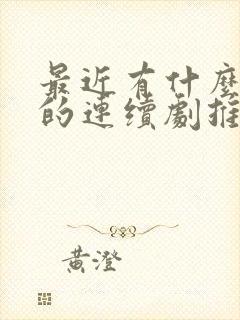 最近有什麼
的連續劇推
黃澄